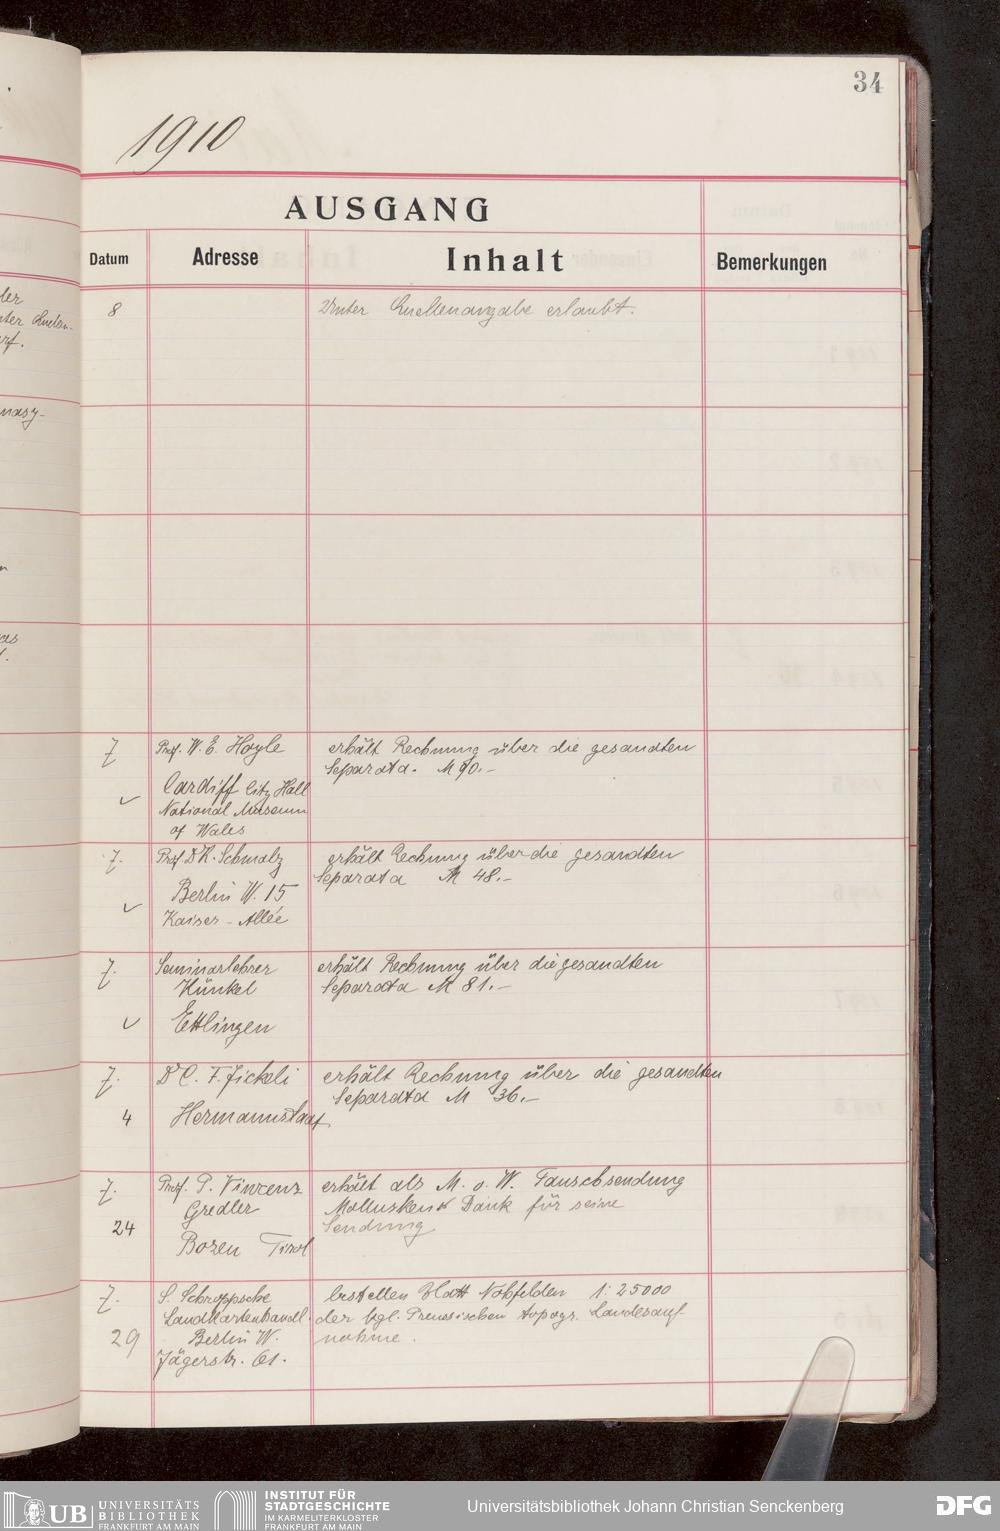 34
1910
AUSGANG
Datum Adresse Inhalt Bemerkungen
8 Unter Quellenangabe erlaubt.
7 Prof. W. E. Hoyle erhält Rechnung über die gesandten
Separata. M 90.-
Cardiff City Hall
National Museum
of Wales
7. Prof. Dr R. Schmalz erhält Rechnung über die gesandten
Separata M 48.-
Berlin W. 15
Kaiser-Allée
7. Seminarlehrer erhält Rechnung über die gesandten
Künkel Separata M 81.-
Ettlingen
7. Dr C. F. Jickeli erhält Rechnung über die gesandten
Separata M 36.-
4 Hermannstadt.
7. Prof. P. Vincenz erhält als M. o. W. Tauschsendung
Gredler Mollusken Dank für seine
24 Sendung
Bozen Tirol
7. S. Schroppsche bestellen Blatt Nohfelden 1:25000
Landkartenhandl. der kgl. Preussischen topogr. Landesauf
29 Berlin W. nahme.
Jägerstr. 61.
ter Quelen-
nasy-
as
UB UNIVERSITÄTS
BIBLIOTHEK
FRANKFURT AM MAIN
INSTITUT FÜR
STADTGESCHICHTE
IM KARMELITERKLOSTER
FRANKFURT AM MAIN
Universitätsbibliothek Johann Christian Senckenberg
DFG